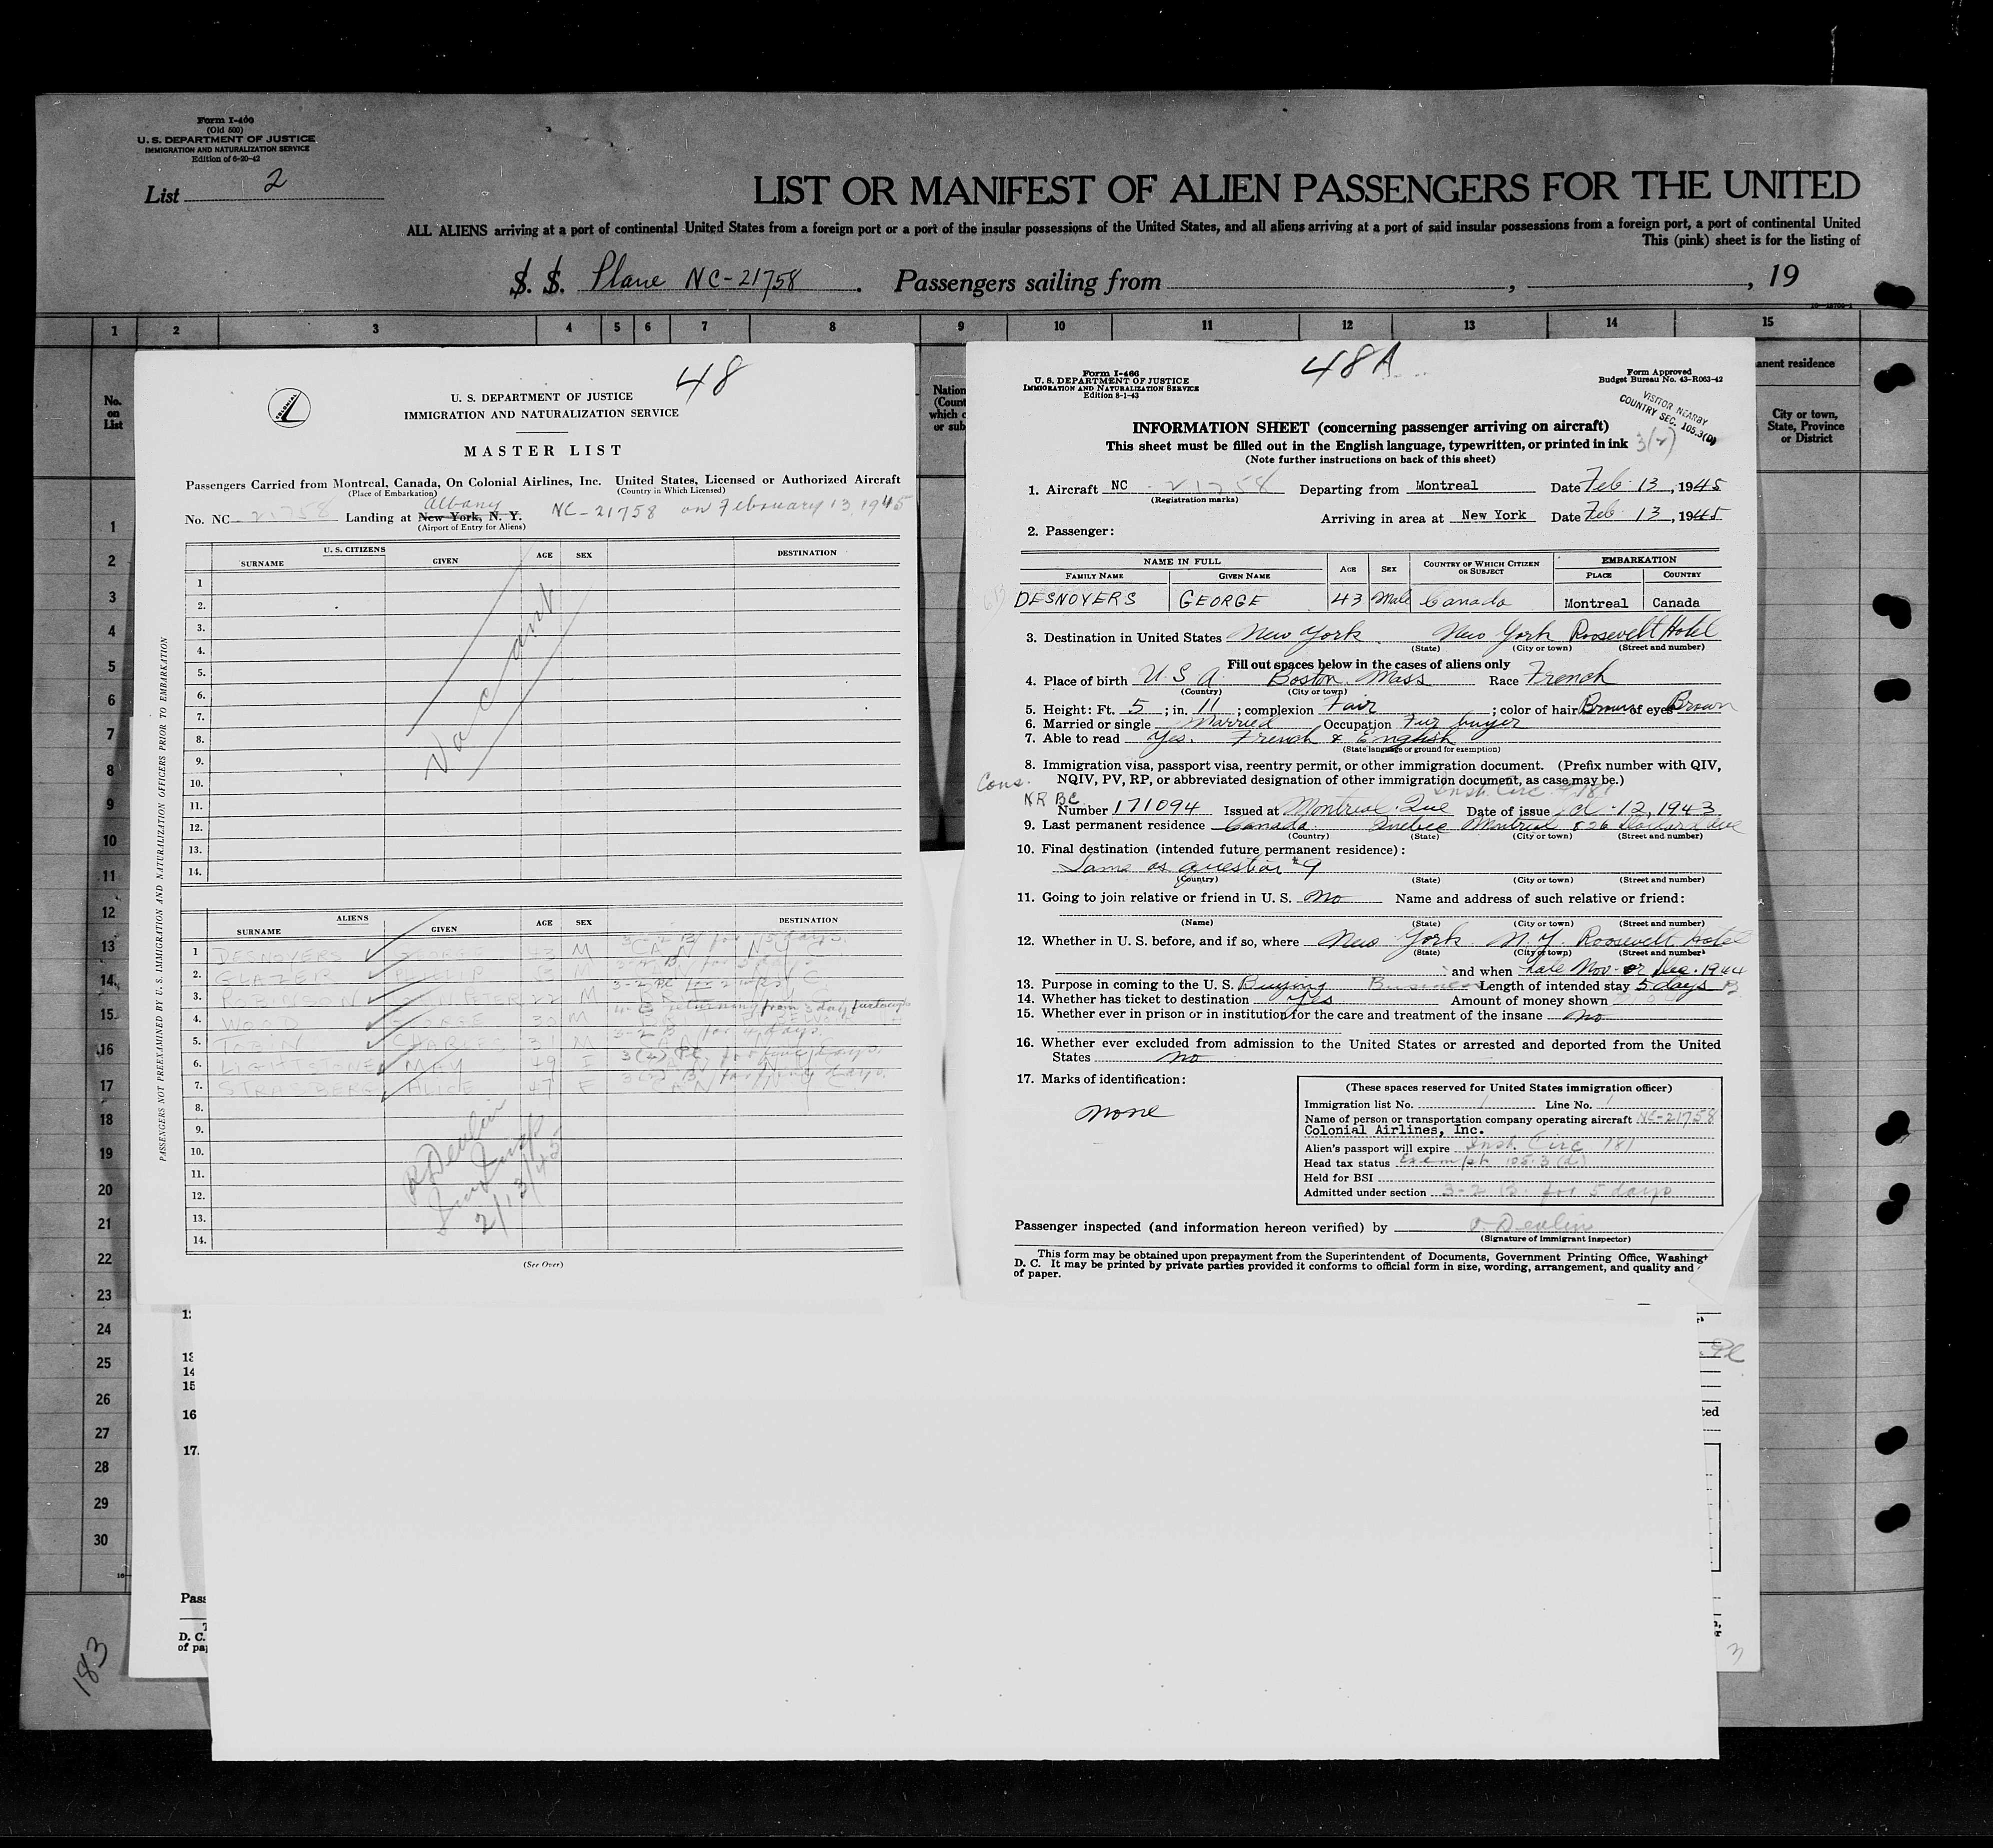 Form I-466
(Old 500)
U. S. DEPARTMENT OF JUSTICE
IMMIGRATION AND NATURALIZATION SERVICE
Edition of 6-20-42
List 2
LIST OR MANIFEST OF ALIEN PASSENGERS FOR THE UNITED
ALL ALIENS arriving at a port of continental United States from a foreign port or a port of the insular possessions of the United States, and all aliens arriving at a port of said insular possessions from a foreign port, a port of continental United
This (pink) sheet is for the listing of
S. S. Plane NC-21758. Passengers sailing from , , 19
1 2 3 4 5 6 7 8 9 10 11 12 13 14 15
No. on List
Nation
(Count
which c
or sub
anent residence
City or town, State, Province or District
1
2
3
4
5
6
7
8
9
10
11
12
13
14
15
16
17
18
19
20
21
22
23
24
25
26
27
28
29
30
183
48
COLONIAL
U. S. DEPARTMENT OF JUSTICE
IMMIGRATION AND NATURALIZATION SERVICE
MASTER LIST
Passengers Carried from Montreal, Canada, On Colonial Airlines, Inc. United States, Licensed or Authorized Aircraft
(Place of Embarkation) (Country in Which Licensed)
Albany
No. NC 21758 Landing at New York, N. Y. NC-21758 on February 13, 1945
(Airport of Entry for Aliens)
PASSENGERS NOT PREEXAMINED BY U. S. IMMIGRATION AND NATURALIZATION OFFICERS PRIOR TO EMBARKATION
U. S. CITIZENS
SURNAME GIVEN AGE SEX DESTINATION
1
2.
3.
4.
5.
6.
7.
8.
9.
10.
11.
12.
13.
14.
Vacant
ALIENS
SURNAME GIVEN AGE SEX DESTINATION
3-2 B for 5 days.
1 DESNOYERS GEORGE 43 M CAN NY
2. GLAZER PHILLIP M
3. ROBINSON PETER 22 M
4-B returning from 3 day furlough
4. WOOD GEORGE 30 M
3-2 B for 4 days.
5. TOBIN CHARLES 31 M
6. LIGHTSTONE MAY 49 F
7. STRASBERG ALICE 47 F
8.
9.
10.
11.
12.
13.
14.
Devlin
Imm Insp
2/13/45
(See Over)
48A
Form I-466
U. S. DEPARTMENT OF JUSTICE
IMMIGRATION AND NATURALIZATION SERVICE
Edition 8-1-43
Form Approved
Budget Bureau No. 43-R063-42
VISITOR NEARBY
COUNTRY SEC. 105.3(D)
3(2)
INFORMATION SHEET (concerning passenger arriving on aircraft)
This sheet must be filled out in the English language, typewritten, or printed in ink
(Note further instructions on back of this sheet)
1. Aircraft NC - 21758 Departing from Montreal Date Feb 13, 1945
(Registration marks)
Arriving in area at New York Date Feb 13, 1945
2. Passenger:
NAME IN FULL AGE SEX COUNTRY OF WHICH CITIZEN OR SUBJECT EMBARKATION
FAMILY NAME GIVEN NAME PLACE COUNTRY
DESNOYERS GEORGE 43 Male Canada Montreal Canada
3. Destination in United States New York New York Roosevelt Hotel
(State) (City or town) (Street and number)
Fill out spaces below in the cases of aliens only
4. Place of birth U. S. A Boston Mass Race French
(Country) (City or town)
5. Height: Ft. 5 ; in. 11 ; complexion Fair ; color of hair Brown of eyes Brown
6. Married or single Married Occupation Fur buyer
7. Able to read Yes. French & English
(State language or ground for exemption)
8. Immigration visa, passport visa, reentry permit, or other immigration document. (Prefix number with QIV,
NQIV, PV, RP, or abbreviated designation of other immigration document, as case may be.)
Cons. Inst. Circ # 181
NR BC
Number 171094 Issued at Montreal Que Date of issue 12, 1943
9. Last permanent residence Canada Quebec Montreal 826
(Country) (State) (City or town) (Street and number)
10. Final destination (intended future permanent residence):
Same as question #9
(Country) (State) (City or town) (Street and number)
11. Going to join relative or friend in U. S. No Name and address of such relative or friend:
(Name) (State) (City or town) (Street and number)
12. Whether in U. S. before, and if so, where New York N. Y. Roosevelt Hotel
(State) (City or town) (Street and number)
and when Late Nov. or Dec. 1944
13. Purpose in coming to the U. S. Buying Business Length of intended stay 5 days
14. Whether has ticket to destination Yes Amount of money shown
15. Whether ever in prison or in institution for the care and treatment of the insane No
16. Whether ever excluded from admission to the United States or arrested and deported from the United
States No
17. Marks of identification:
None
(These spaces reserved for United States immigration officer)
Immigration list No. 1 Line No. 1
Name of person or transportation company operating aircraft NC-21758
Colonial Airlines, Inc.
Alien's passport will expire Inst. Circ 181
Head tax status Exempt 105.3(d)
Held for BSI
Admitted under section 3-2 B. for 5 days
Passenger inspected (and information hereon verified) by Devlin
(Signature of immigrant inspector)
This form may be obtained upon prepayment from the Superintendent of Documents, Government Printing Office, Washingt
D. C. It may be printed by private parties provided it conforms to official form in size, wording, arrangement, and quality and
of paper.
14
15
16
17.
ted
Pass
D. C.
of pa